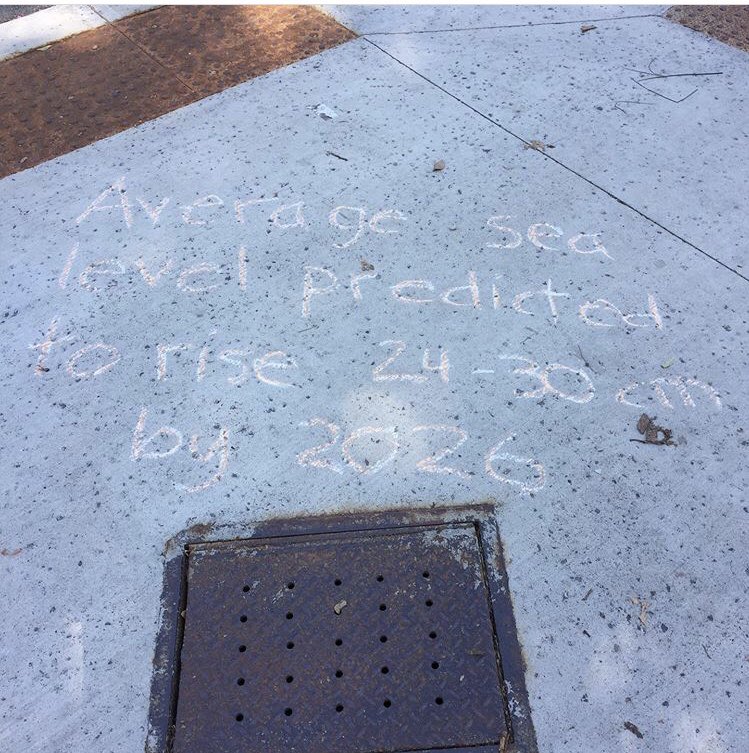 Average sea
level predicted
to rise 24-30 cm
by 2026